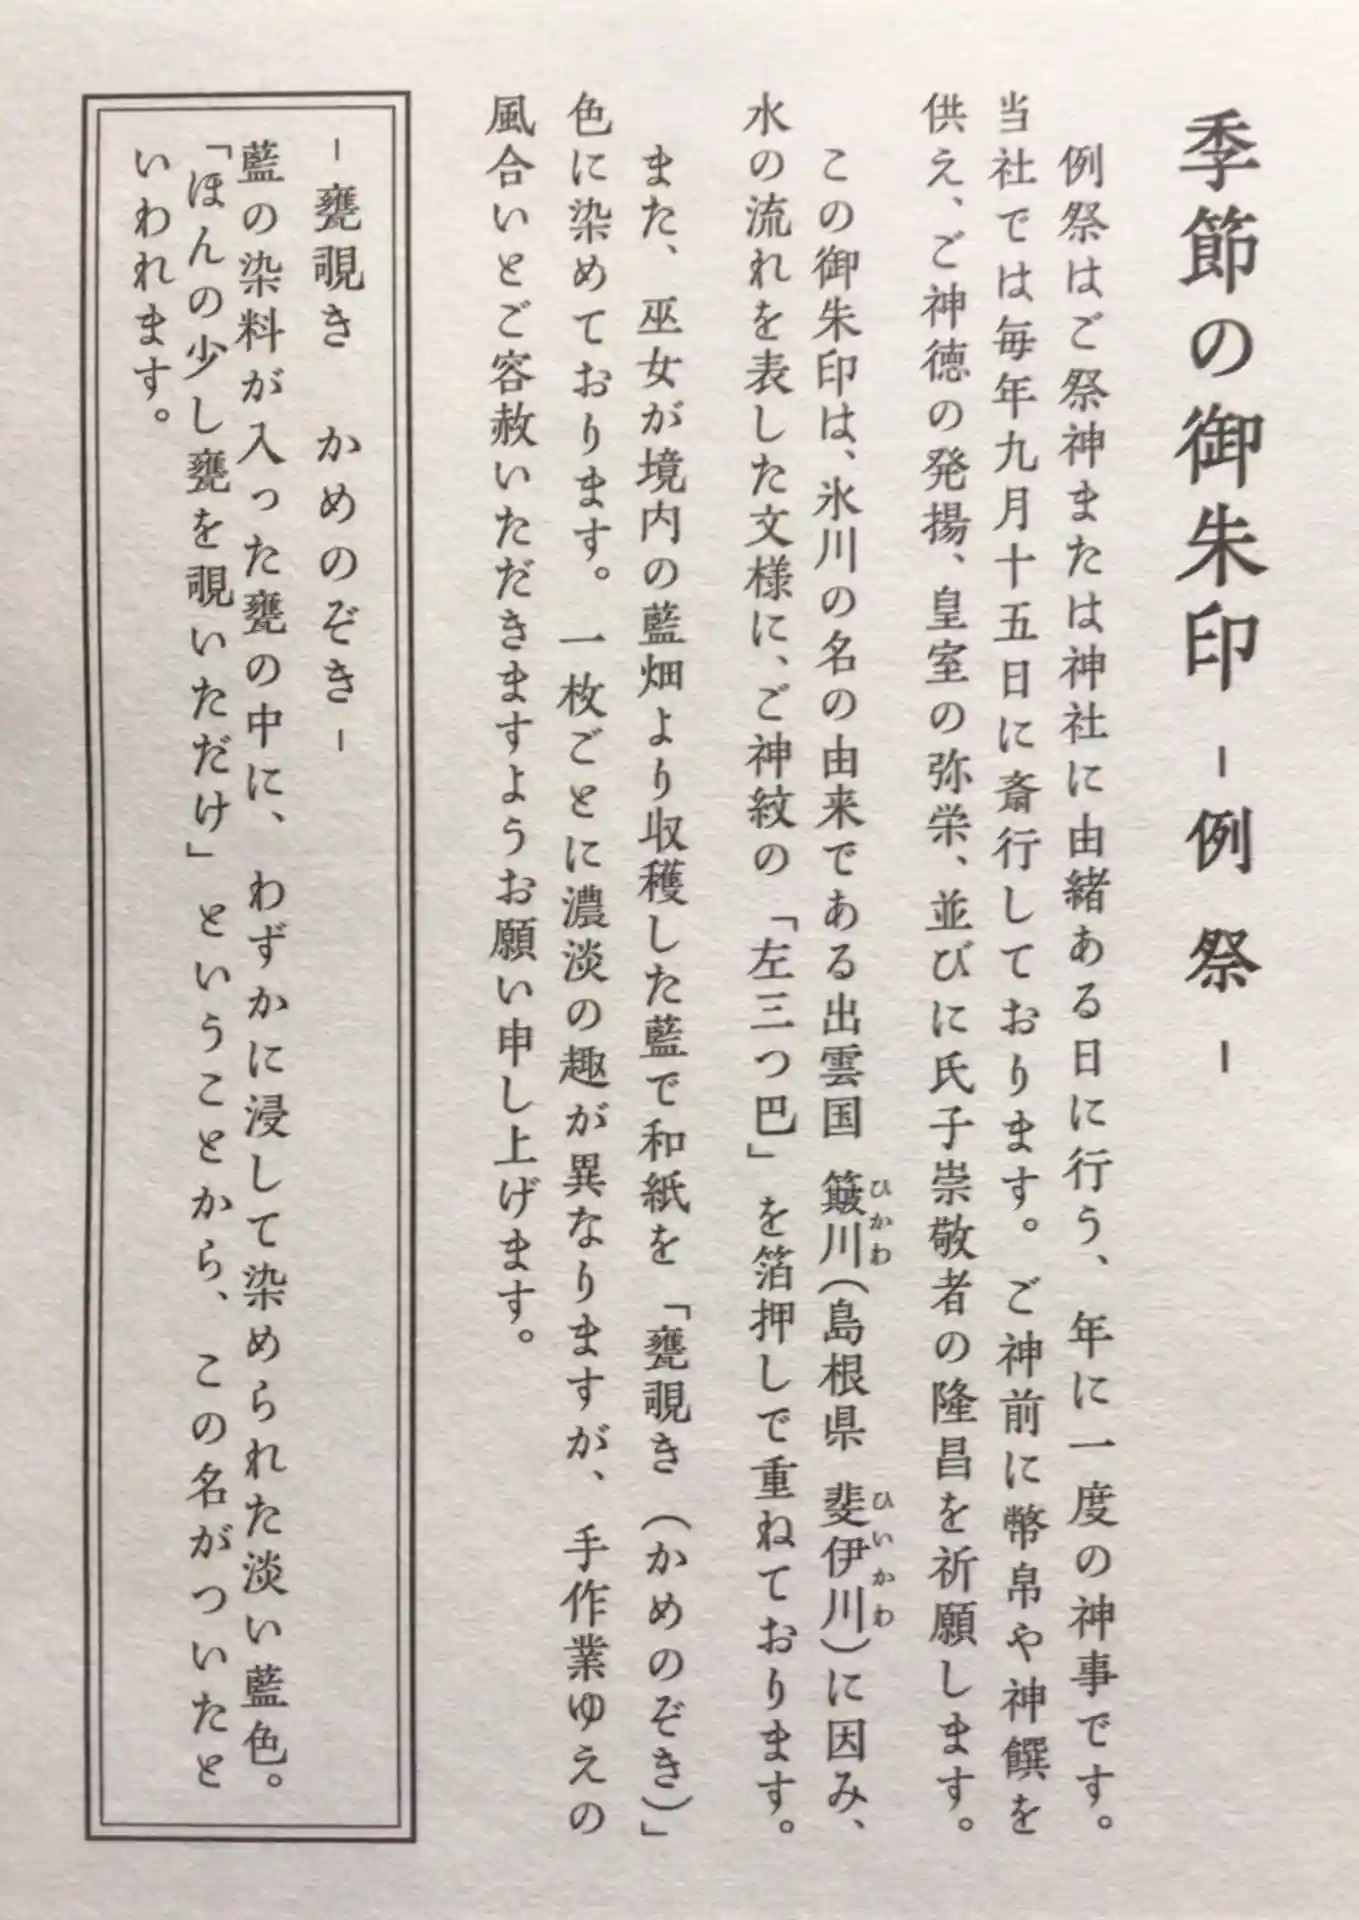 季節の御朱印 -例祭-
例祭はご祭神または神社に由緒ある日に行う、年に一度の神事です。
当社では毎年九月十五日に斎行しております。ご神前に幣帛や神饌を
供え、ご神徳の発揚、皇室の弥栄、並びに氏子崇敬者の隆昌を祈願します。
この御朱印は、氷川の名の由来である出雲国 簸川(島根県 斐伊川)に因み、
ひかわ
ひいかわ
水の流れを表した文様に、ご神紋の「左三つ巴」を箔押しで重ねております。
また、巫女が境内の藍畑より収穫した藍で和紙を「甕覗き(かめのぞき)」
色に染めております。一枚ごとに濃淡の趣が異なりますが、手作業ゆえの
風合いとご容赦いただきますようお願い申し上げます。
-甕覗き かめのぞき-
藍の染料が入った甕の中に、わずかに浸して染められた淡い藍色。
「ほんの少し甕を覗いただけ」ということから、この名がついたと
いわれます。